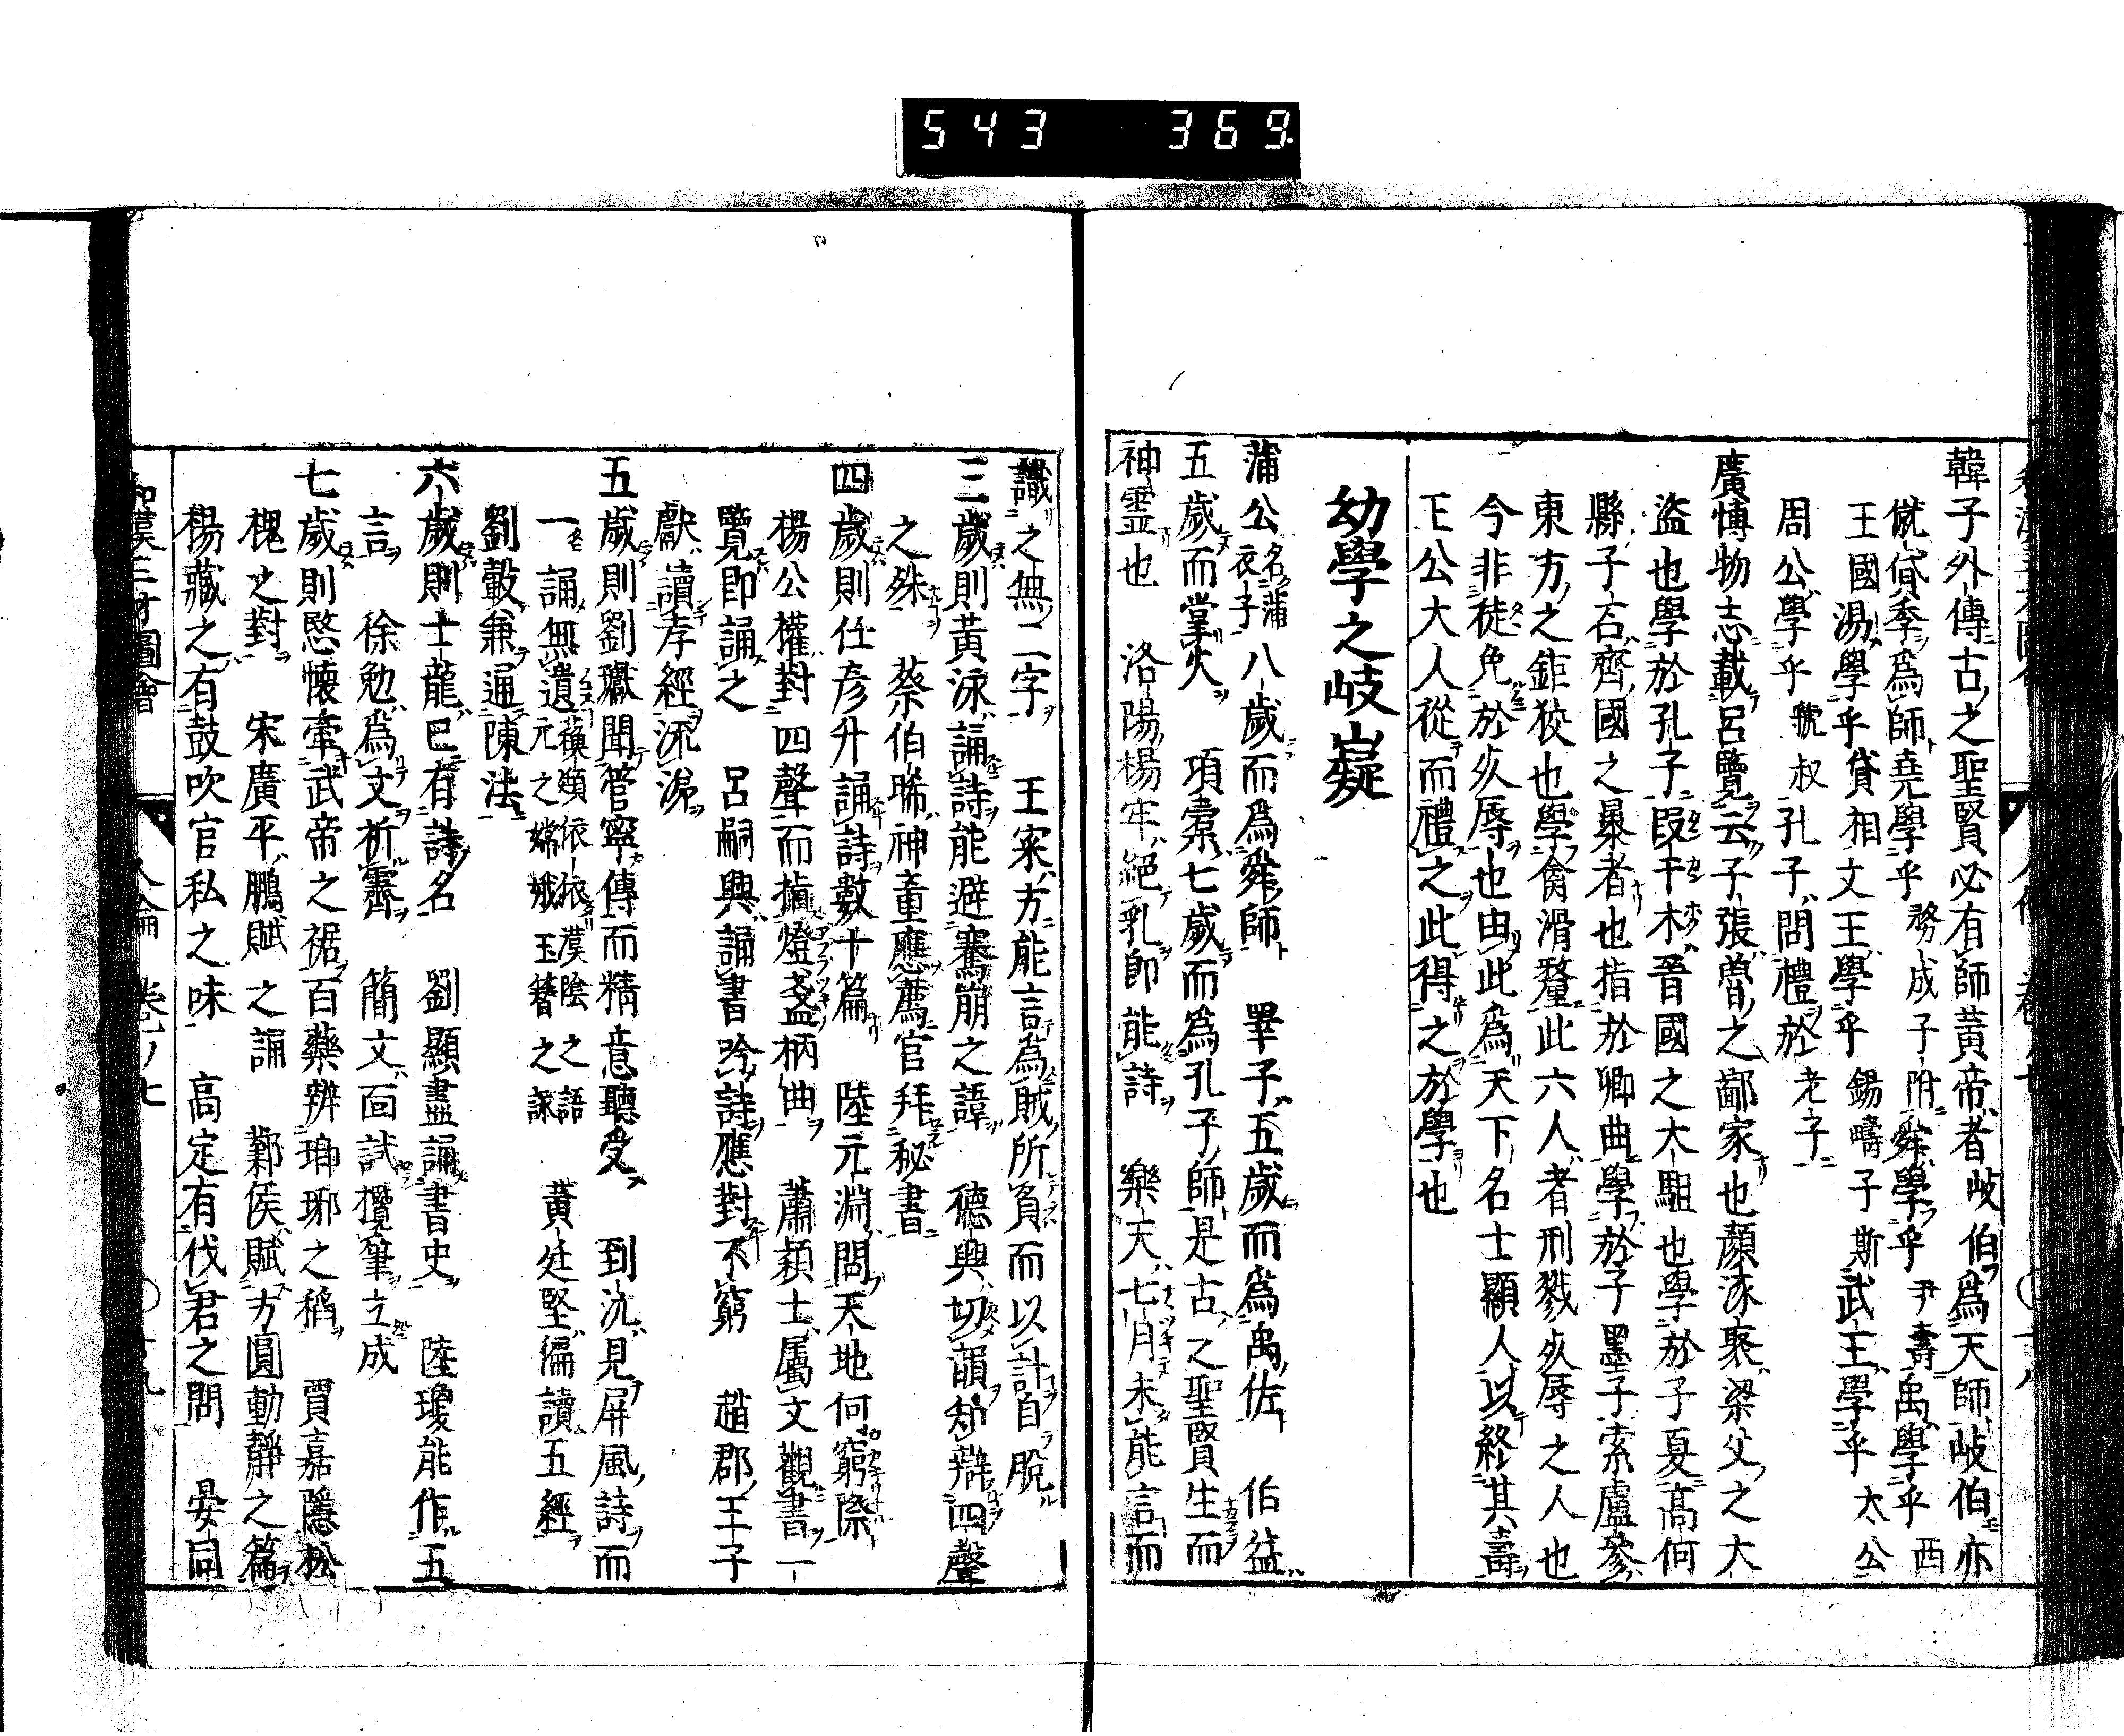 543 369
韓子外傳古之聖賢必有師黃帝者岐伯爲天師岐伯亦
僦貸季爲師堯學乎務成子附舜學乎尹壽禹學乎西
王國湯學乎貸相文王學乎錫疇子斯武王學乎太公
周公學乎虢叔孔子問禮於老子
廣博物志載呂覽云子張魯之鄙家也顏涿聚梁父之大
盜也學於孔子段干木晉國之大駔也學於子夏高何
縣子石齊國之暴者也指於鄉曲學於子墨子索盧參
東方之鉅狡也學禽滑釐此六人者刑戮死辱之人也
今非徒免於死辱也由此爲天下名士顯人以終其壽
王公大人從而禮之此得之於學也
幼學之岐嶷
蒲公名蒲衣子八歲而爲舜師 睪子五歲而爲禹佐 伯益
五歲而掌火 項橐七歲而爲孔子師是古之聖賢生而
神霊也 洛陽楊牢絕乳即能詩 樂天七月未能言而
識之無二字 王寀方能言爲賊所負而以計自脫
三歲則黃泳誦詩能避騫崩之諱 德輿切韻知辯四聲
之殊 蔡伯晞神童應薦官拜秘書
四歲則任彥升誦詩數十篇 陸元淵問天地何窮際
楊公權對四聲而指燈盞柄曲 蕭穎士屬文觀書一
覽即誦之 呂嗣興誦書吟詩應對不窮 趙郡王子
獻讀孝經流涕
五歲則劉瓛聞管寧傳而精意聽受 到沆見屏風詩而
一誦無遺 蘓頲依依漢陰之語 元之嫦娥玉簪之詠 黃廷堅徧讀五經
劉轂兼通陳法
六歲則士龍已有詩名 劉顯盡誦書史 陸瓊能作五
言 徐勉爲文祈霽 簡文面試攬筆立成
七歲則愍懷牽武帝之裾 百藥辨瑯琊之稻 賈嘉隱松
槐之對 宋廣平鵬賦之誦 鄴侯賦方圓動靜之篇
楊藏之有鼓吹官私之味 高定有伐君之問 晏同
和漢三才圖會 人倫 卷ノ七